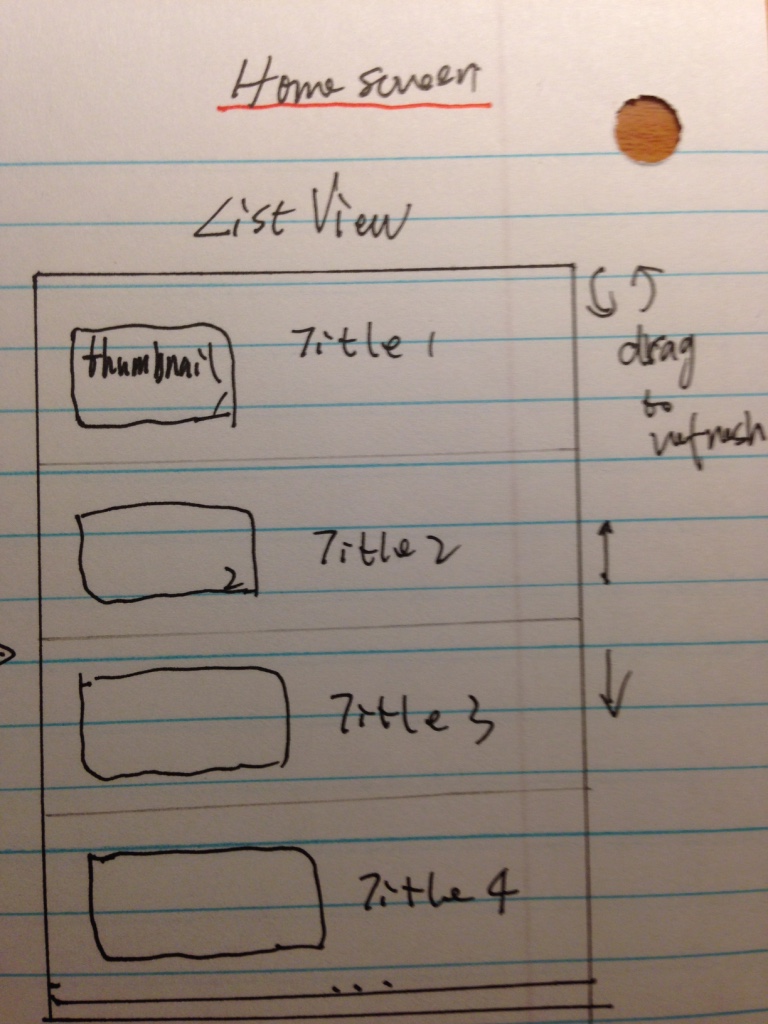 Home screen
List View
thumbnail
1
Title 1
drag
to
refresh
2
Title 2
Title 3
Title 4
...